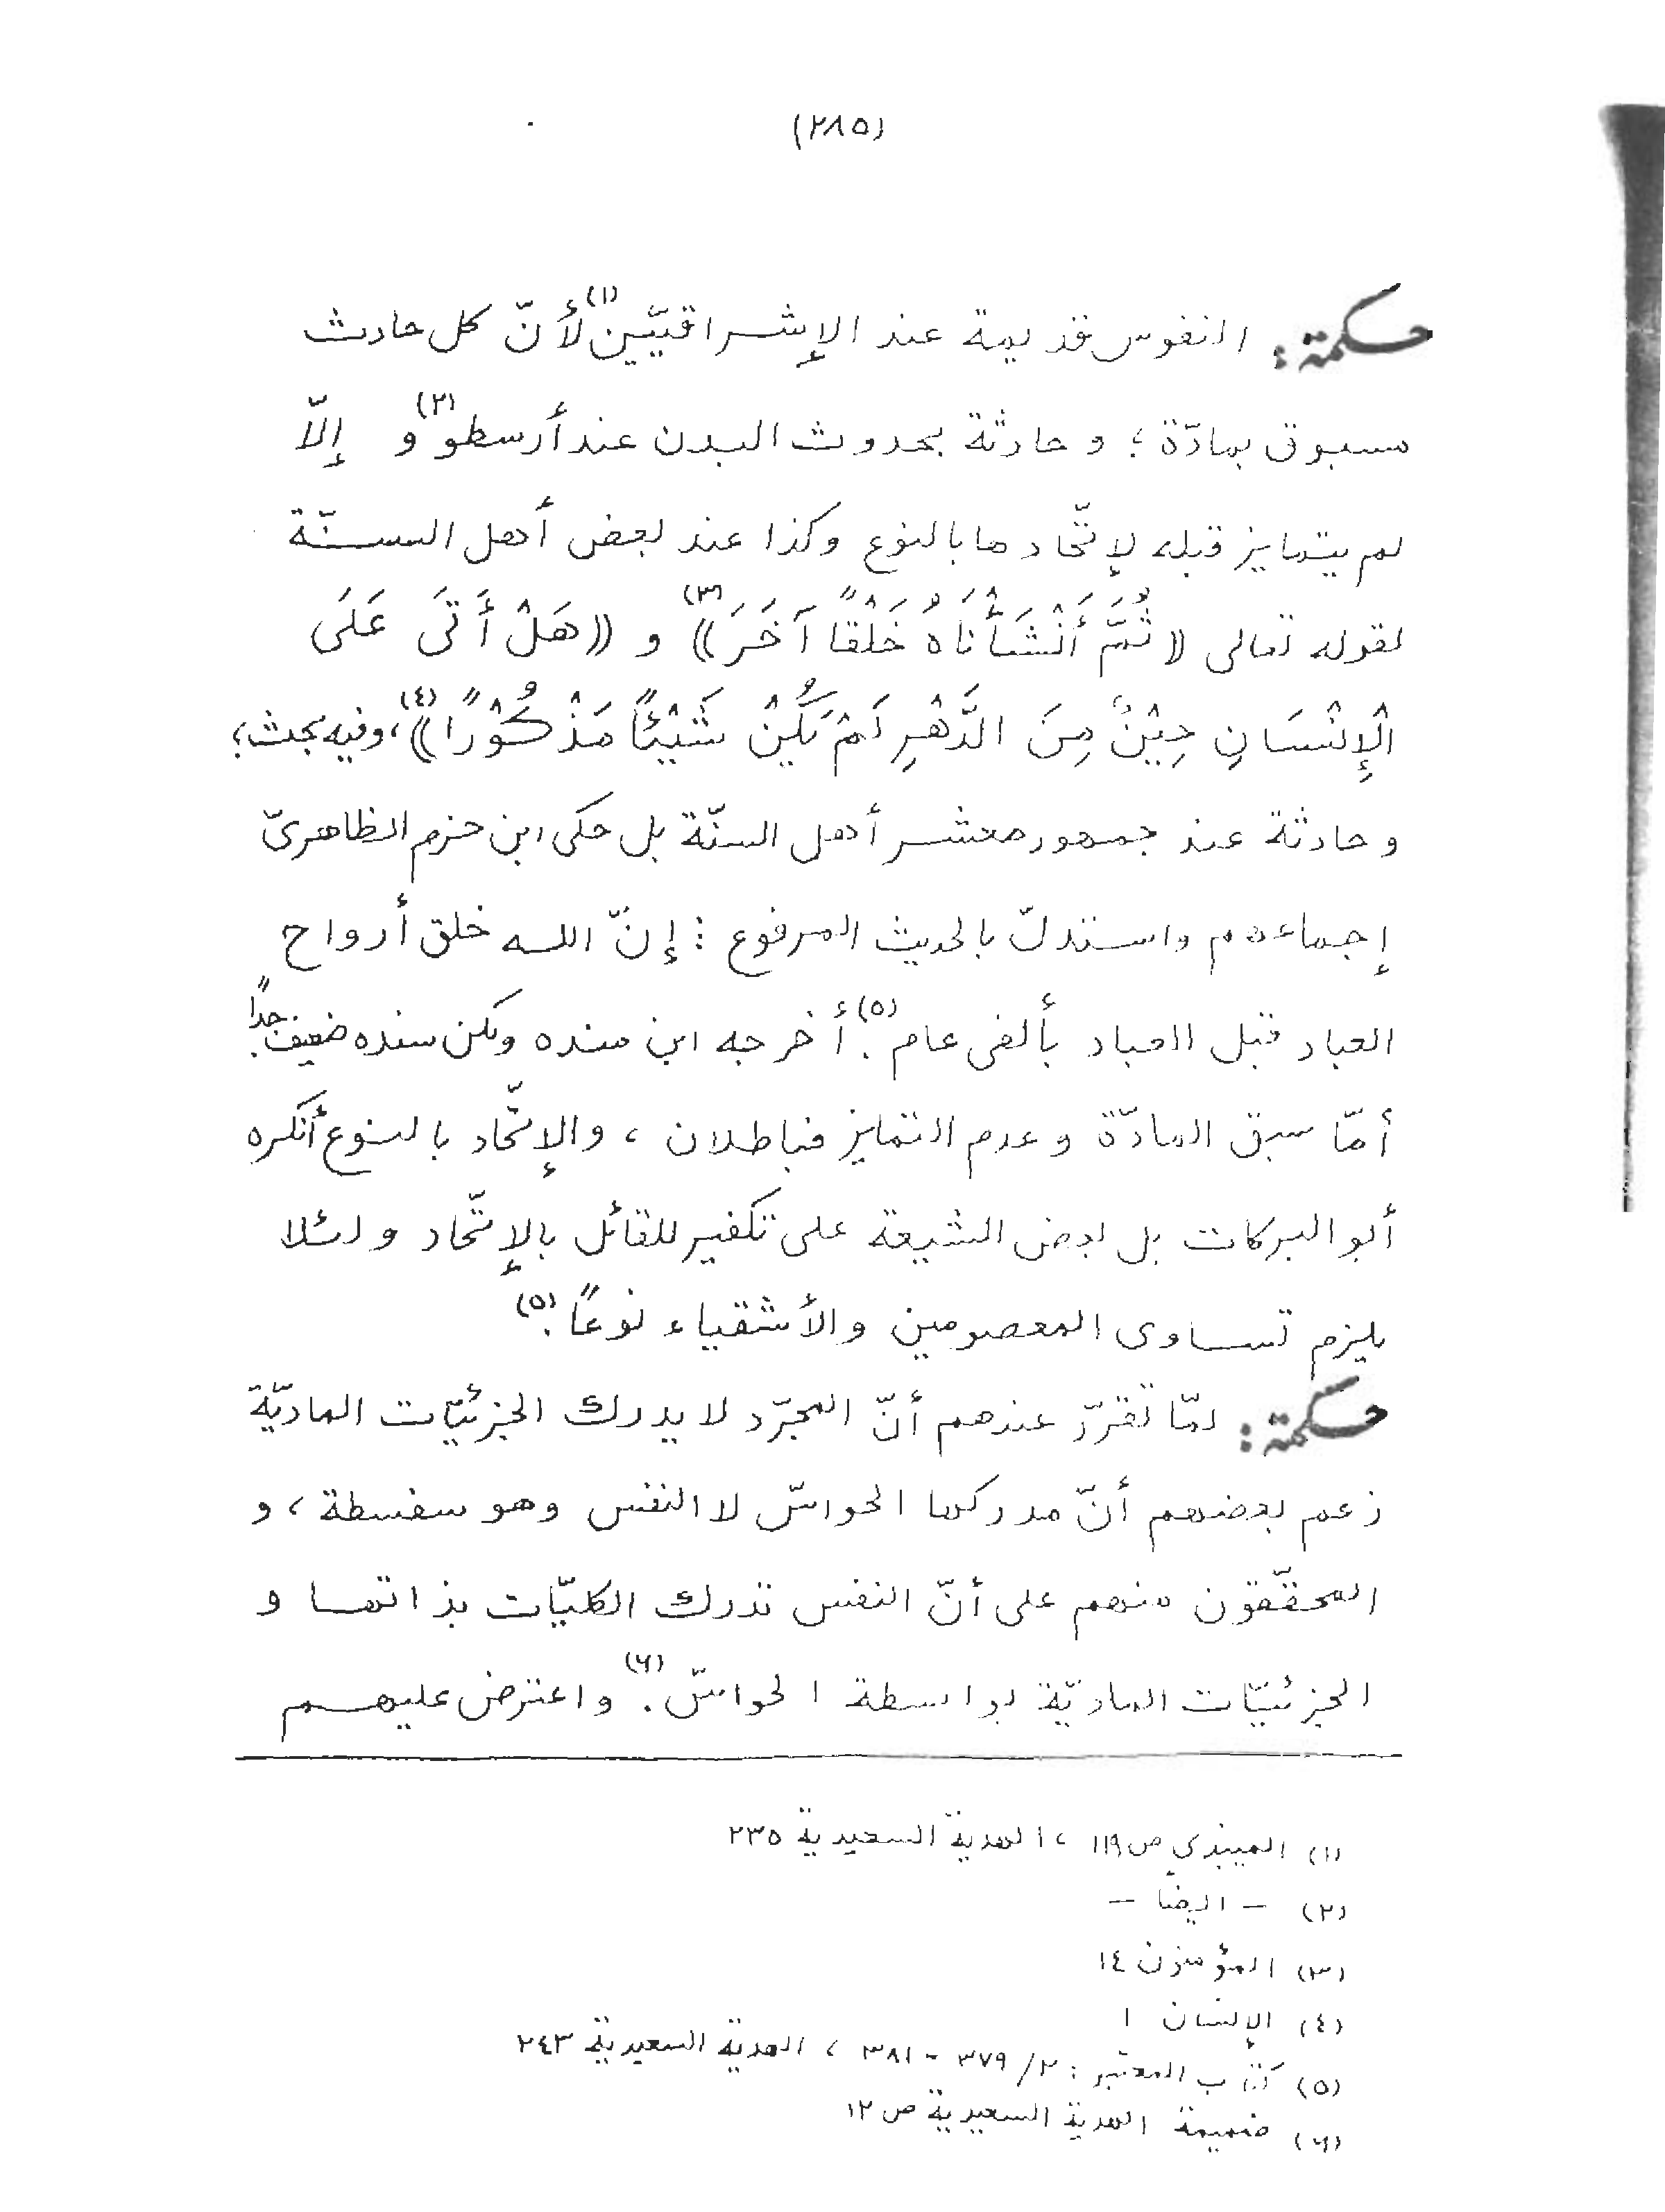 (٢٨٥)
حكمة: النفوس قديمة عند الإشراقيّين(١) لأنّ كل حادث
مسبوق بمادّة؛ و حادثة بحدوث البدن عند أرسطو(٢) و إلّا
لم يتمايز قبله لإتّحادها بالنوع وكذا عند بعض أهل السنّة
لقوله تعالى ((ثُمَّ أَنْشَأْنَاهُ خَلْقًا آخَرَ))(٣) و ((هَلْ أَتَى عَلَى
الْإِنْسَانِ حِيْنٌ مِنَ الدَّهْرِ لَمْ يَكُنْ شَيْئًا مَذْكُوْرًا))(٤)، وفيه بحث؛
و حادثة عند جمهور معشر أهل السنّة بل حكى ابن حزم الظاهرىّ
إجماعهم واستدلّ بالحديث المرفوع: إنّ الله خلق أرواح
العباد قبل العباد بألفى عام(٥). أخرجه ابن منده ولكن سنده ضعيف جدًا.
أمّا سبق المادّة و عدم التمايز فباطلان، والإتّحاد بالنوع أنكره
أبو البركات بل بعض الشيعة على تكفير للقائل بالإتّحاد و لئلا
يلزم تساوى المعصومين والأشقياء نوعًا.(٥)
حكمة: لمّا تقرّر عندهم أنّ المجرّد لا يدرك الجزئيّات الماديّة
زعم بعضهم أنّ مدركها الحواسّ لا النفس وهو سفسطة، و
المحقّقون منهم على أنّ النفس تدرك الكليّات بذاتها و
الجزئيّات الماديّة بواسطة الحواسّ.(٦) واعترض عليهم
(١) الميبذي ص ١١٩، الهدية السعيدية ٢٣٥
(٢) – ايضًا –
(٣) المؤمنون ١٤
(٤) الإنسان ١
(٥) كتاب المعتبر: ٢/ ٣٧٩ - ٣٨١، الهدية السعيدية ٢٤٣
(٦) ضميمة الهدية السعيدية ص ١٢